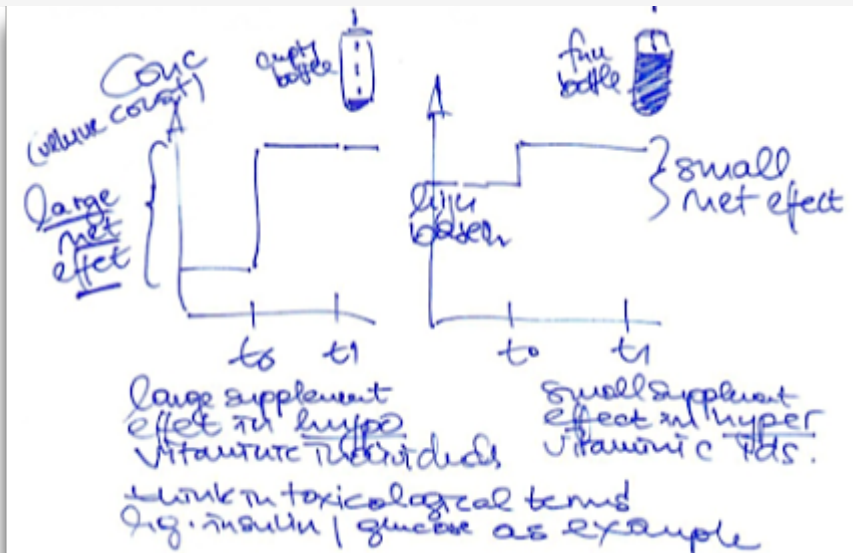 Conc
(volume const)
empty
bottle
large
net
effet
t0
t1
full
bottle
high
small
net effect
t0
t1
large supplement
effet in hypo
vitaminic individuals
small supplement
effect in hyper
vitaminic ids.
think in toxicological terms
insulin / glucose as example